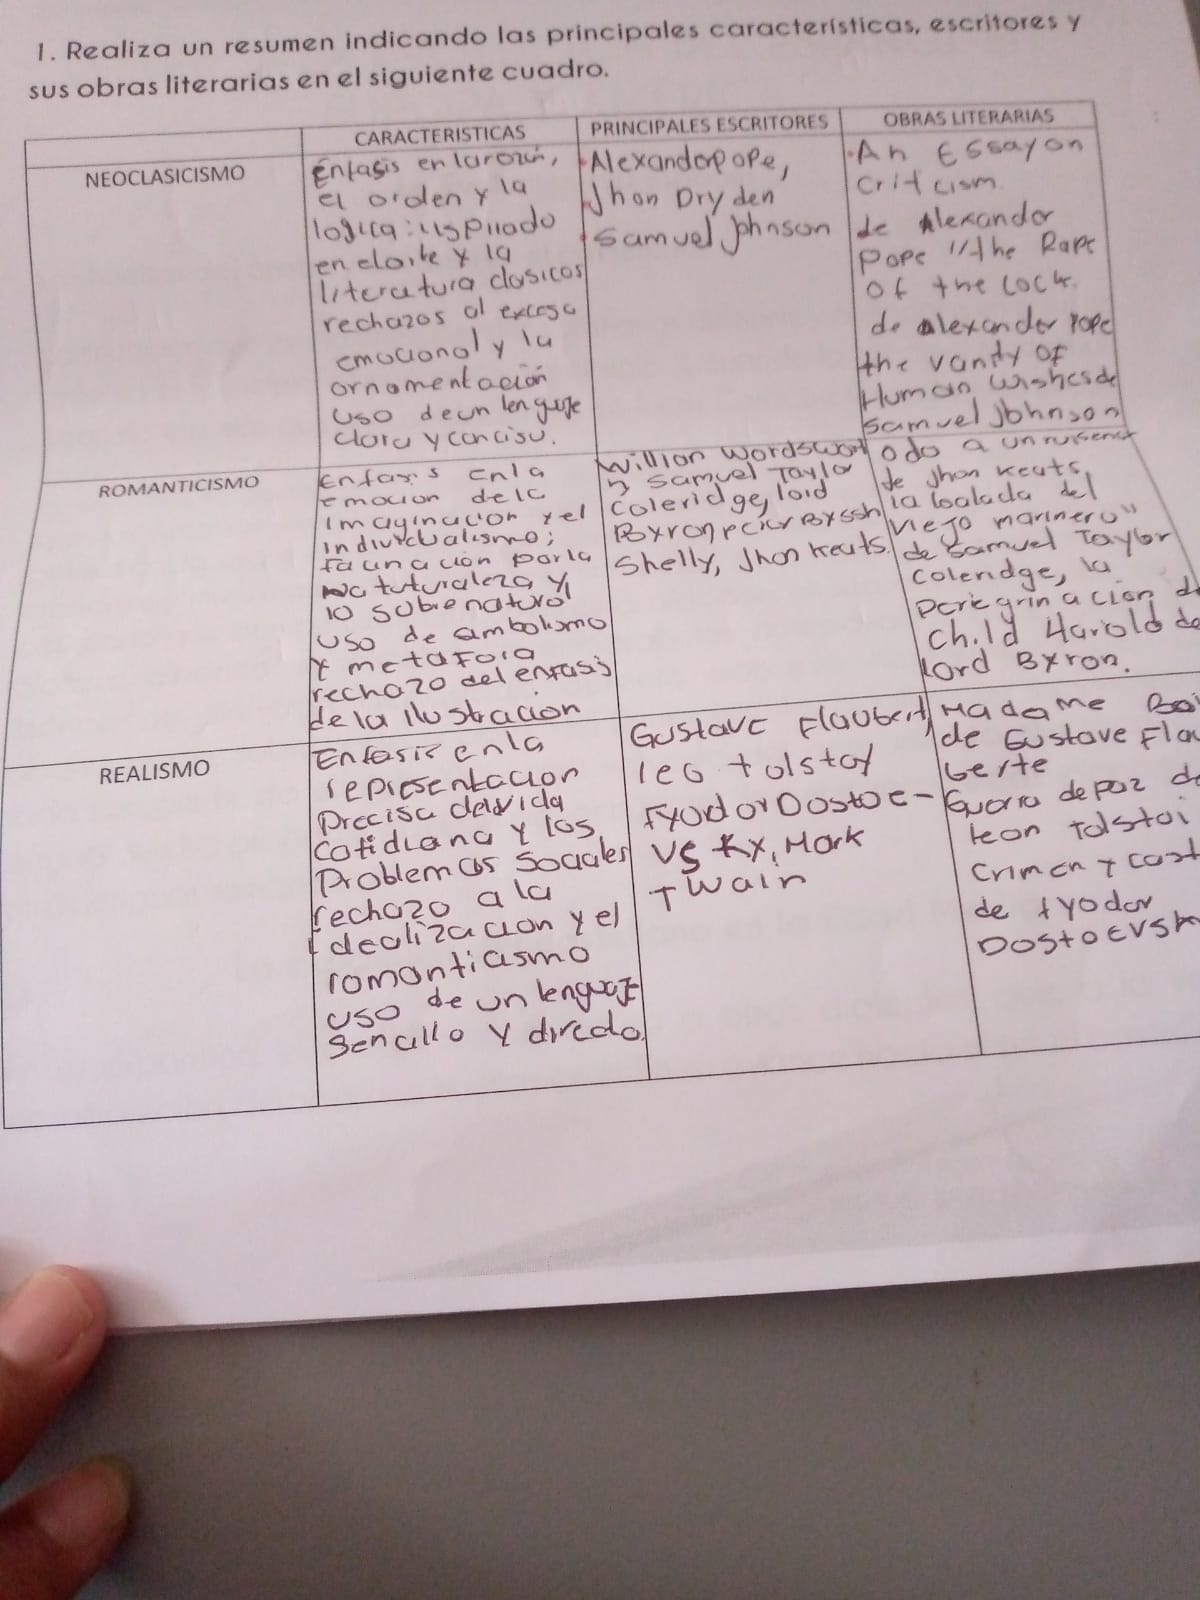 1. Realiza un resumen indicando las principales características, escritores y
sus obras literarias en el siguiente cuadro.
CARACTERISTICAS
PRINCIPALES ESCRITORES
OBRAS LITERARIAS
NEOCLASICISMO
Énfasis en la razón,
el orden y la
logica: uspirado
en el arte y la
literatura clasicos
rechazos al exceso
emocional y la
ornamentación
uso de un lenguje
claro y conciso.
Alexanderpope,
Jhon Dryden
Samuel Johnson
An Essay on
Criticism.
de Alexander
Pope "the Rape
of the Lock.
de Alexander Pope
the vanity of
Human Wishes de
Samuel Johnson
ROMANTICISMO
Enfasis en la
emocion de la
imaginacion y el
individualismo;
facinación por la
naturaleza y
lo sobrenatural
uso de simbolismo
y metafora
rechazo del enfasis
de la ilustracion
Willian Wordswort
h Samuel Taylor
Coleridge, lord
Byron, Byssh
Shelly, Jhon keats.
odo a un ruisenor
de Jhon keats,
la balada del
viejo marinero"
de Samuel Taylor
Coleridge, la
peregrinacion d
Child Harold de
lord Byron.
REALISMO
Enfasis en la
representacion
Precisa de la vida
cotidiana y los
Problemas sociales
rechazo a la
idealizacion y el
romanticismo
uso de un lenguaje
Sencillo y directo
Gustave Flaubert,
leo tolstoy
fyodor Dostoe-
vs ky, Mark
Twain
Madame Bo
de Gustave Flau
berte
Guerra de paz de
leon Tolstoi
Crimen y cast
de fyodor
Dostoevsk